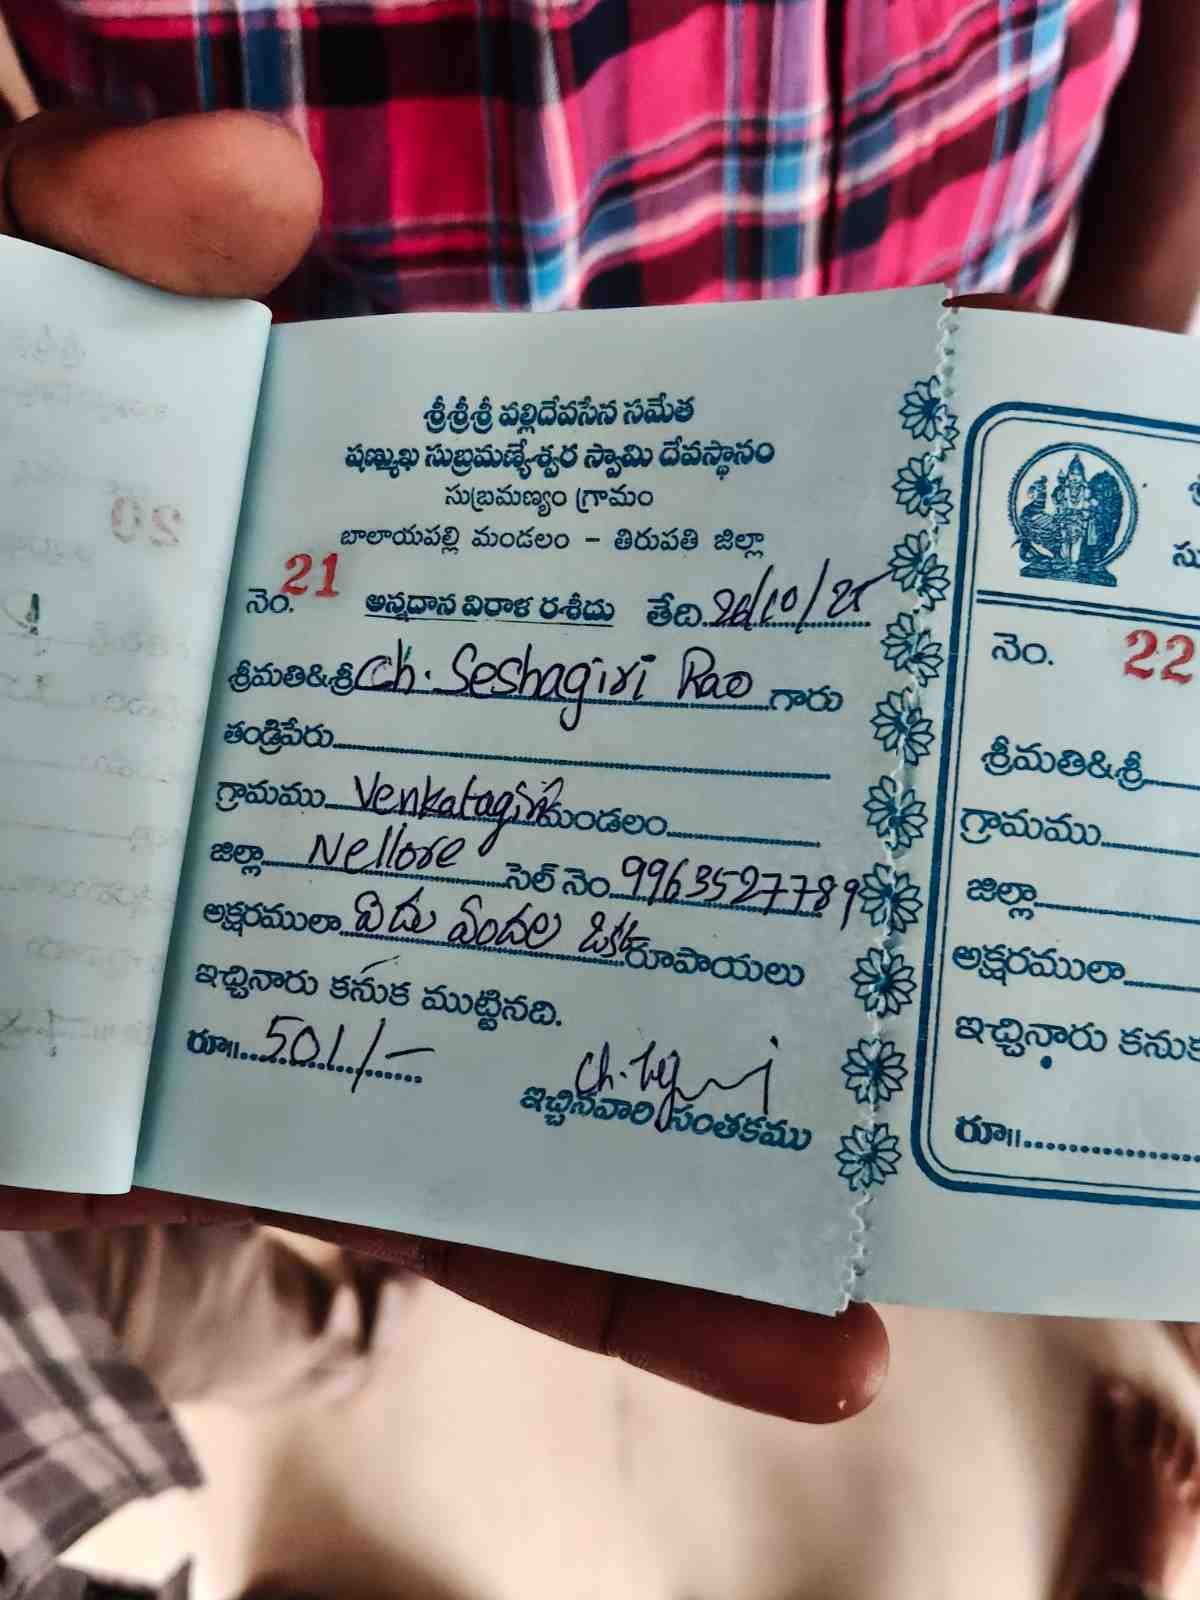 శ్రీశ్రీశ్రీ వల్లిదేవసేన సమేత
షణ్ముఖ సుబ్రమణ్యేశ్వర స్వామి దేవస్థానం
సుబ్రమణ్యం గ్రామం
బాలాయపల్లి మండలం - తిరుపతి జిల్లా
నెం. 21 అన్నదాన విరాళ రశీదు తేది. 26/10/25
శ్రీమతి&శ్రీ Ch. Seshagiri Rao గారు
తండ్రిపేరు
గ్రామము Venkatagiri మండలం
జిల్లా Nellore సెల్ నెం. 9963527789
అక్షరములా ఐదు వందల ఒక రూపాయలు
ఇచ్చినారు కనుక ముట్టినది.
రూ॥ 501/-
Ch.
ఇచ్చినవారి సంతకము
20
నెం. 22
శ్రీమతి&శ్రీ
గ్రామము
జిల్లా
అక్షరములా
ఇచ్చినారు
రూ॥